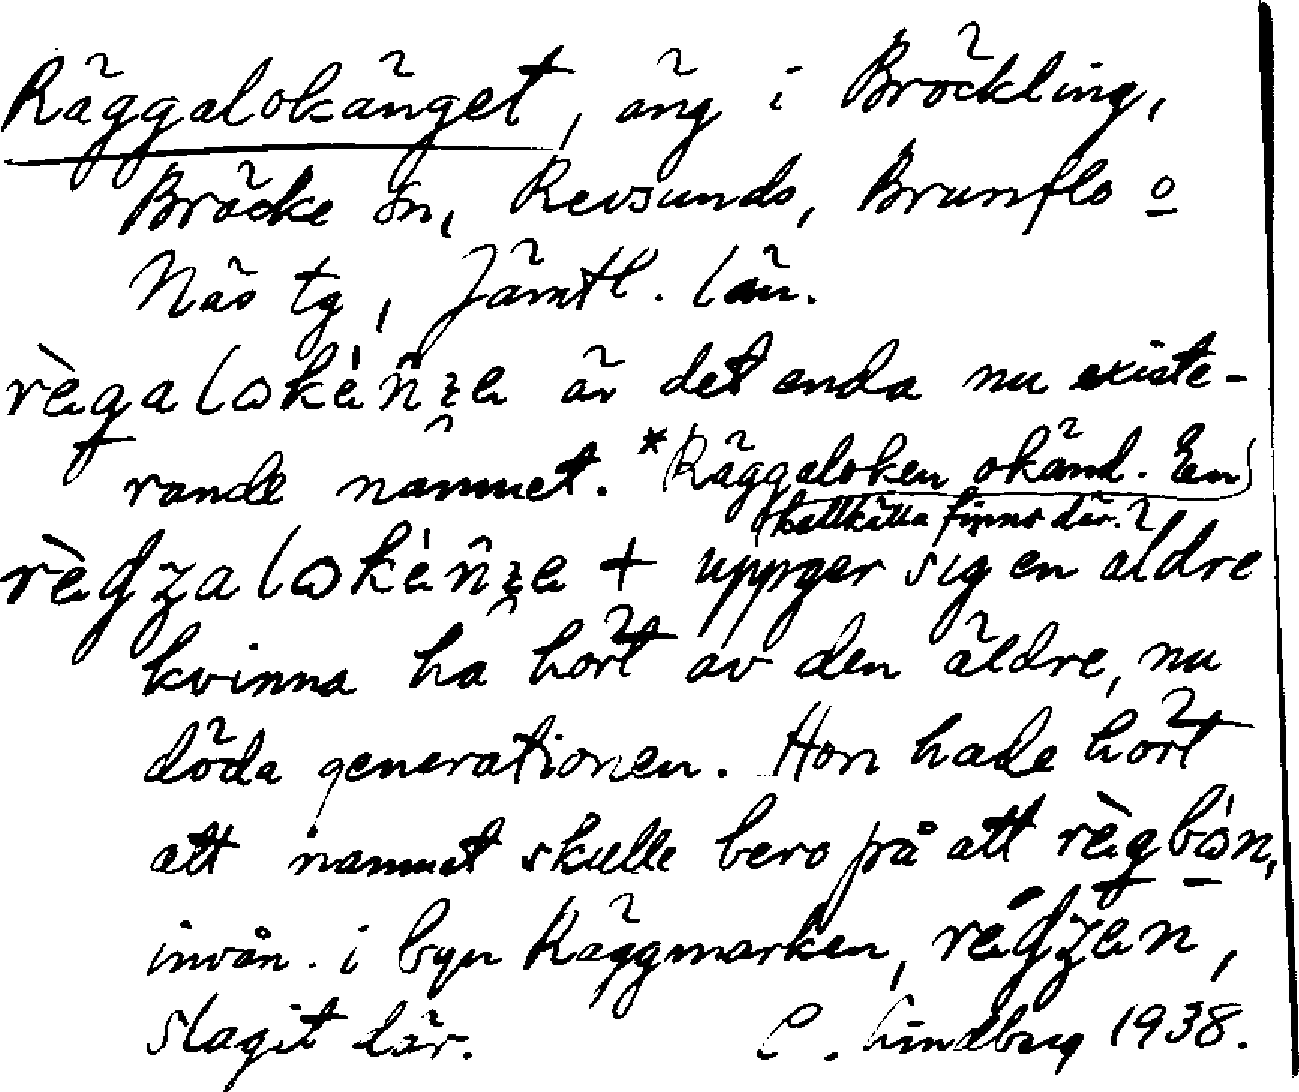 Räggalokänget, äng i Bröckling,
Bräcke sn, Revsunds, Brunflo o
Näs tg, Jämtl. län.
är det enda nu existe-
rande namnet. *Räggaloken okänd. En
kallkälla finns där.
+ uppger sig en äldre
kvinna ha hört av den äldre, nu
döda generationen. Hon hade hört
att namnet skulle bero på att
invån. i byn Räggmarken,
slagit där. C. Lindberg 1938.